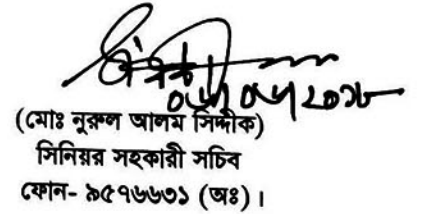 (মোঃ নুরুল আলম সিদ্দীক)
সিনিয়র সহকারী সচিব
ফোন- ৯৫৭৬৬৩১ (অঃ) ।